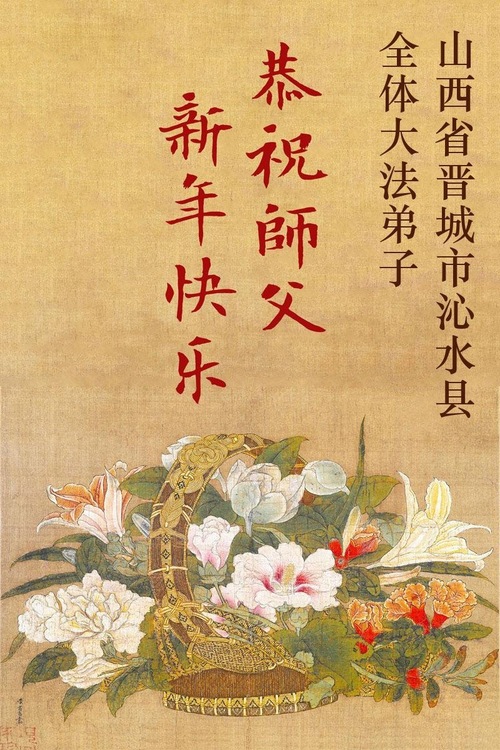 山西省晋城市沁水县
全体大法弟子
恭祝師父
新年快乐